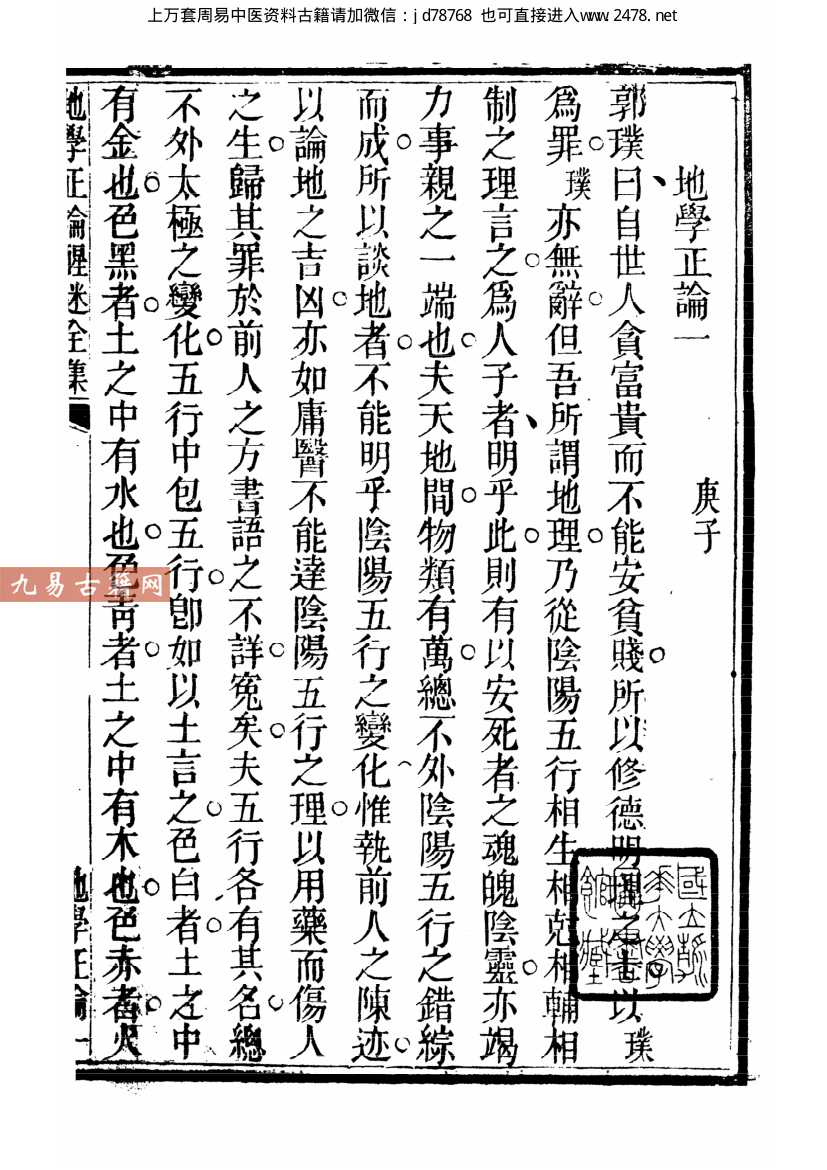 上万套周易中医资料古籍请加微信：jd78768 也可直接进入www.2478.net
地學正論一 庚子
郭璞曰自世人貪富貴而不能安貧賤所以修德明理之士以璞
爲罪璞亦無辭但吾所謂地理乃從陰陽五行相生相尅相輔相
制之理言之爲人子者明乎此則有以安死者之魂魄陰靈亦竭
力事親之一端也夫天地間物類有萬總不外陰陽五行之錯綜
而成所以談地者不能明乎陰陽五行之變化惟執前人之陳迹
以論地之吉凶亦如庸醫不能達陰陽五行之理以用藥而傷人
之生歸其罪於前人之方書語之不詳寃矣夫五行各有其名總
不外太極之變化五行中包五行卽如以土言之色白者土之中
有金也色黑者土之中有水也色青者土之中有木也色赤者火
地學正論醒迷全集 地學正論一
九易古籍网
國立清華大學
圖書館藏